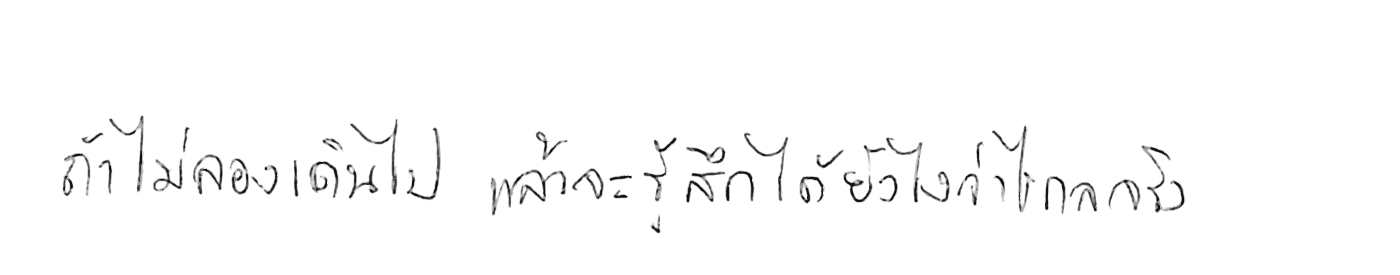 ถ้าไม่ลองเดินไป แล้วจะรู้สึกได้ยังไงว่าไกลจริง